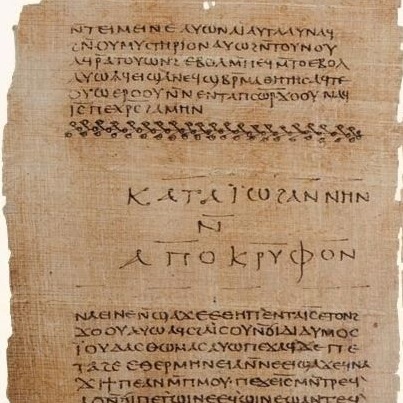 ⲛ̄ⲧⲉⲓⲙⲉⲓⲛⲉ ⲁⲩⲱ ⲛⲁⲓ ⲁⲩⲧⲁⲁⲩ ⲛⲁϥ
ϩⲛ̄ⲛⲟⲩⲙⲩⲥⲧⲏⲣⲓⲟⲛ ⲁⲩⲱ ⲛ̄ⲧⲟⲩⲛⲟⲩ
ⲁϥⲣ̄ⲁⲧⲟⲩⲱⲛϩ ⲉⲃⲟⲗ ⲙ̄ⲡⲉϥⲙ̄ⲧⲟ ⲉⲃⲟⲗ
ⲁⲩⲱ ⲁϥⲉⲓ ϣⲁ ⲛⲉϥϣⲃⲣ̄ⲙⲁⲑⲏⲧⲏⲥ ⲁϥⲧⲉ
ⲟⲩⲱ ⲉⲣⲟⲟⲩ ⲛ̄ⲛⲉⲛⲧⲁⲡⲥⲱⲣ ϫⲟⲟⲩ ⲛⲁϥ
ⲓ̄ⲥ̄ ⲡⲉⲭ̄ⲣ̄ⲥ̄ ϩⲁⲙⲏⲛ
ⲕⲁⲧⲁ ⲓⲱϩⲁⲛⲛⲏⲛ
ⲛ̄
ⲁⲡⲟⲕⲣⲩⲫⲟⲛ
ⲛⲁⲉⲓ ⲛⲉ ⲛ̄ϣⲁϫⲉ ⲉⲑⲏⲡ ⲉⲛⲧⲁⲓ̄ⲥ̄ ⲉⲧⲟⲛϩ
ϫⲟⲟⲩ ⲁⲩⲱ ⲁϥⲥϩⲁⲓⲥⲟⲩ ⲛ̄ϭⲓ ⲇⲓⲇⲩⲙⲟⲥ
ⲓ̈ⲟⲩⲇⲁⲥ ⲑⲱⲙⲁⲥ ⲁⲩⲱ ⲡⲉϫⲁϥ ϫⲉ ⲡⲉ
ⲧⲁϩⲉ ⲉⲑⲉⲣⲙⲏⲛⲉⲓⲁ ⲛ̄ⲛⲉⲉⲓϣⲁϫⲉ ϥⲛⲁ
ϫⲓ ϯⲡⲉ ⲁⲛ ⲙ̄ⲡⲙⲟⲩ ⲡⲉϫⲉ ⲓ̄ⲥ̄ ⲙⲛ̄ⲧⲣⲉϥ
ⲗⲟ ⲛ̄ϭⲓ ⲡⲉⲧϣⲓⲛⲉ ⲉϥϣⲓⲛⲉ ϣⲁⲛⲧⲉϥ